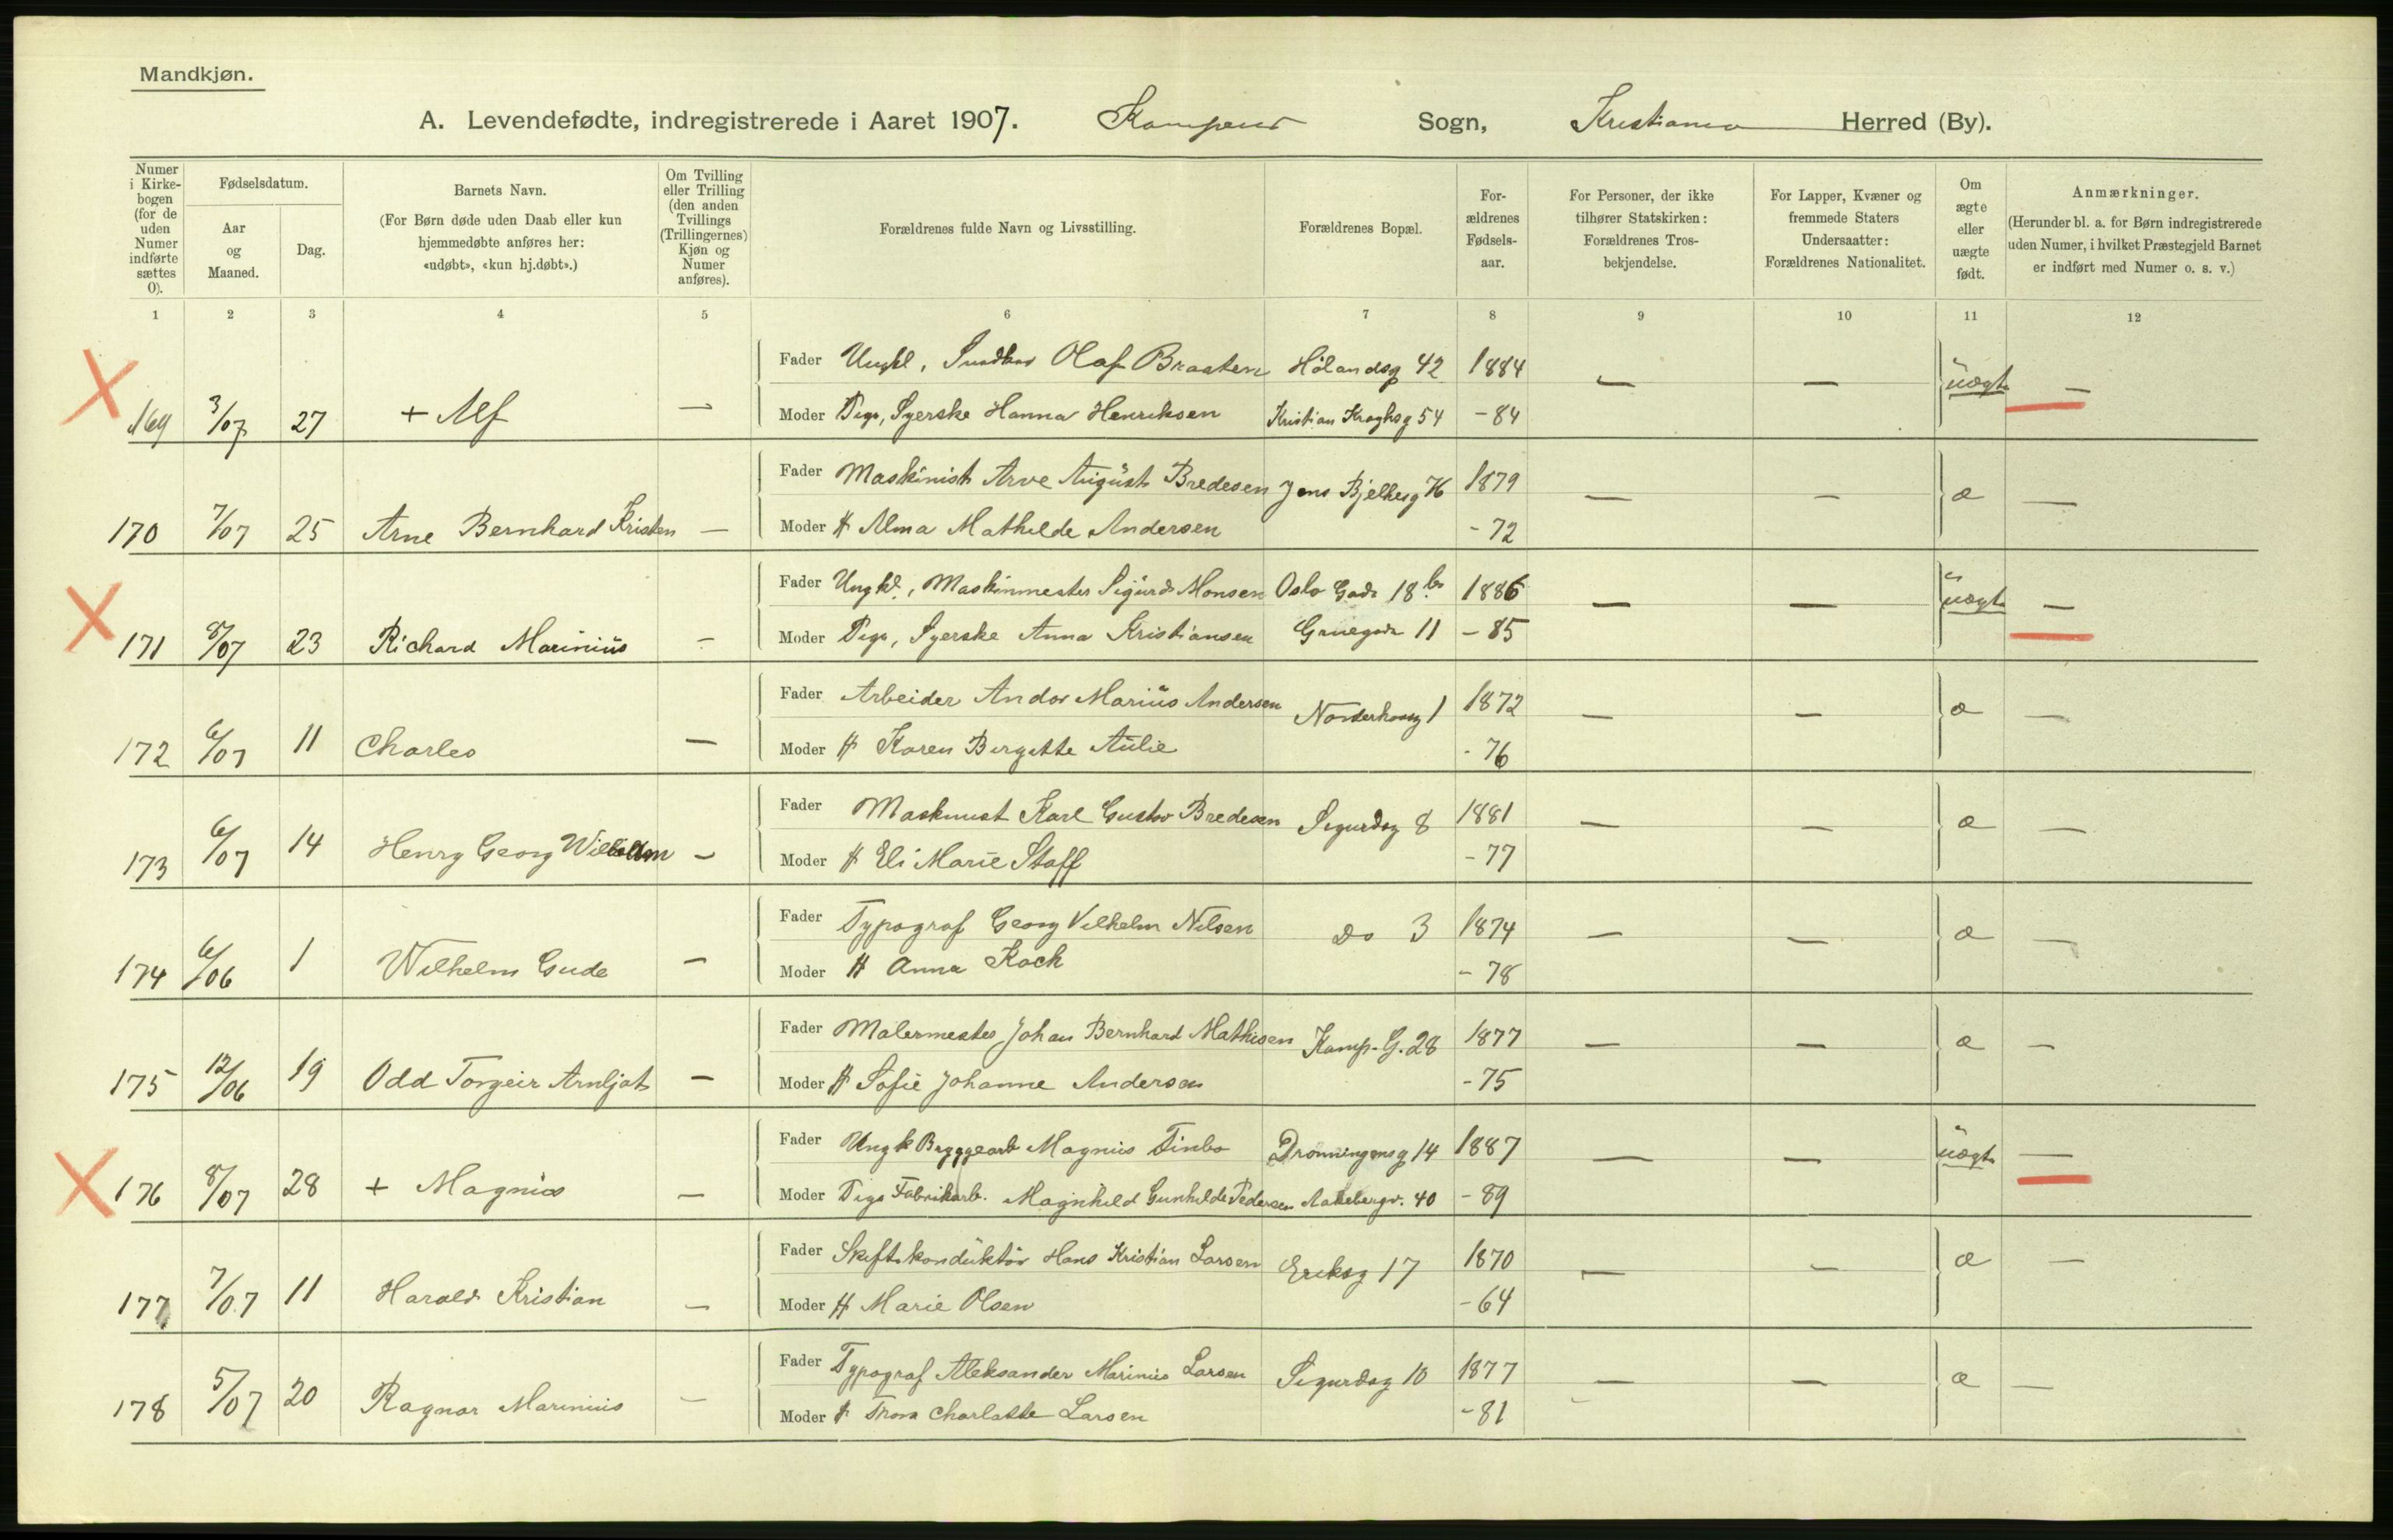 Mandkjøn.
A. Levendefødte, indregistrerede i Aaret 1907. Kampens Sogn, Kristiania Herred (By).
Numer i Kirkebogen (for de uden Numer indførte sættes 0).
Fødselsdatum.
Aar og Maaned.
Dag.
Barnets Navn.
(For Børn døde uden Daab eller kun hjemmedøbte anføres her: «udøbt», «kun hj.døbt».)
Om Tvilling eller Trilling (den anden Tvillings (Trillingernes) Kjøn og Numer anføres).
Forældrenes fulde Navn og Livsstilling.
Forældrenes Bopæl.
Forældrenes Fødselsaar.
For Personer, der ikke tilhører Statskirken: Forældrenes Trosbekjendelse.
For Lapper, Kvæner og fremmede Staters Undersaatter: Forældrenes Nationalitet.
Om ægte eller uægte født.
Anmærkninger.
(Herunder bl. a. for Børn indregistrerede uden Numer, i hvilket Præstegjeld Barnet er indført med Numer o. s. v.)
1 2 3 4 5 6 7 8 9 10 11 12
Fader Ungkl, Olaf Braaten Hølandsg 42 1884 — — uægte —
169 3/07 27 + Alf — Moder Pige, Syerske Hanna Henriksen Kristian Kroghsg 54 - 84
Fader Maskinist Arve August Bredesen Jens Bjelkesg 76 1879 — — æ —
170 7/07 25 Arne Bernhard Kristen — Moder H Alma Mathilde Andersen - 72
Fader Ungkl., Maskinmester Sigurd Monsen Oslo Gade 18 b 1886 — — uægte —
171 8/07 23 Richard Marinius — Moder Pige, Syerske Anna Kristiansen Grüegade 11 - 85
Fader Arbeider Andor Marius Andersen Norderhovg 1 1872 — — æ —
172 6/07 11 Charles — Moder H Karen Birgitte Aulie - 76
Fader Maskinist Karl Gustav Bredesen Sigurdsg 8 1881 — — æ —
173 6/07 14 Henry Georg Wilhelm — Moder H Eli Marie Staff - 77
Fader Typograf Georg Vilhelm Nilsen Do 3 1874 — — æ —
174 6/06 1 Wilhelm Gude — Moder H Anna Koch - 78
Fader Malermester Johan Bernhard Mathisen Kamp. G. 28 1877 — — æ —
175 12/06 19 Odd Torgeir Arnljot — Moder H Sofie Johanne Andersen - 75
Fader Ungk Bryggearb Magnus Finbo Dronningensg 14 1887 — — uægte —
176 8/07 28 + Magnus — Moder Pige Fabrikarb. Magnhild Gunhilde Pedersen Aakebergv. 40 - 89
Fader Skiftekonduktør Hans Kristian Larsen Eriksg 17 1870 — — æ —
177 7/07 11 Harald Kristian — Moder H Marie Olsen - 64
Fader Typograf Aleksander Marinius Larsen Sigurdsg 10 1877 — — æ —
178 5/07 20 Ragnar Marinius — Moder H Thora Charlotte Larsen - 81